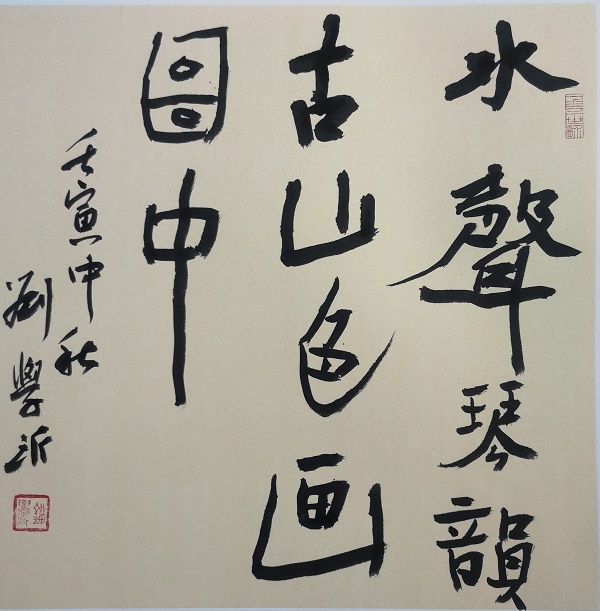 水聲琴韻
古山色画
圖中
壬寅中秋
劉學沂